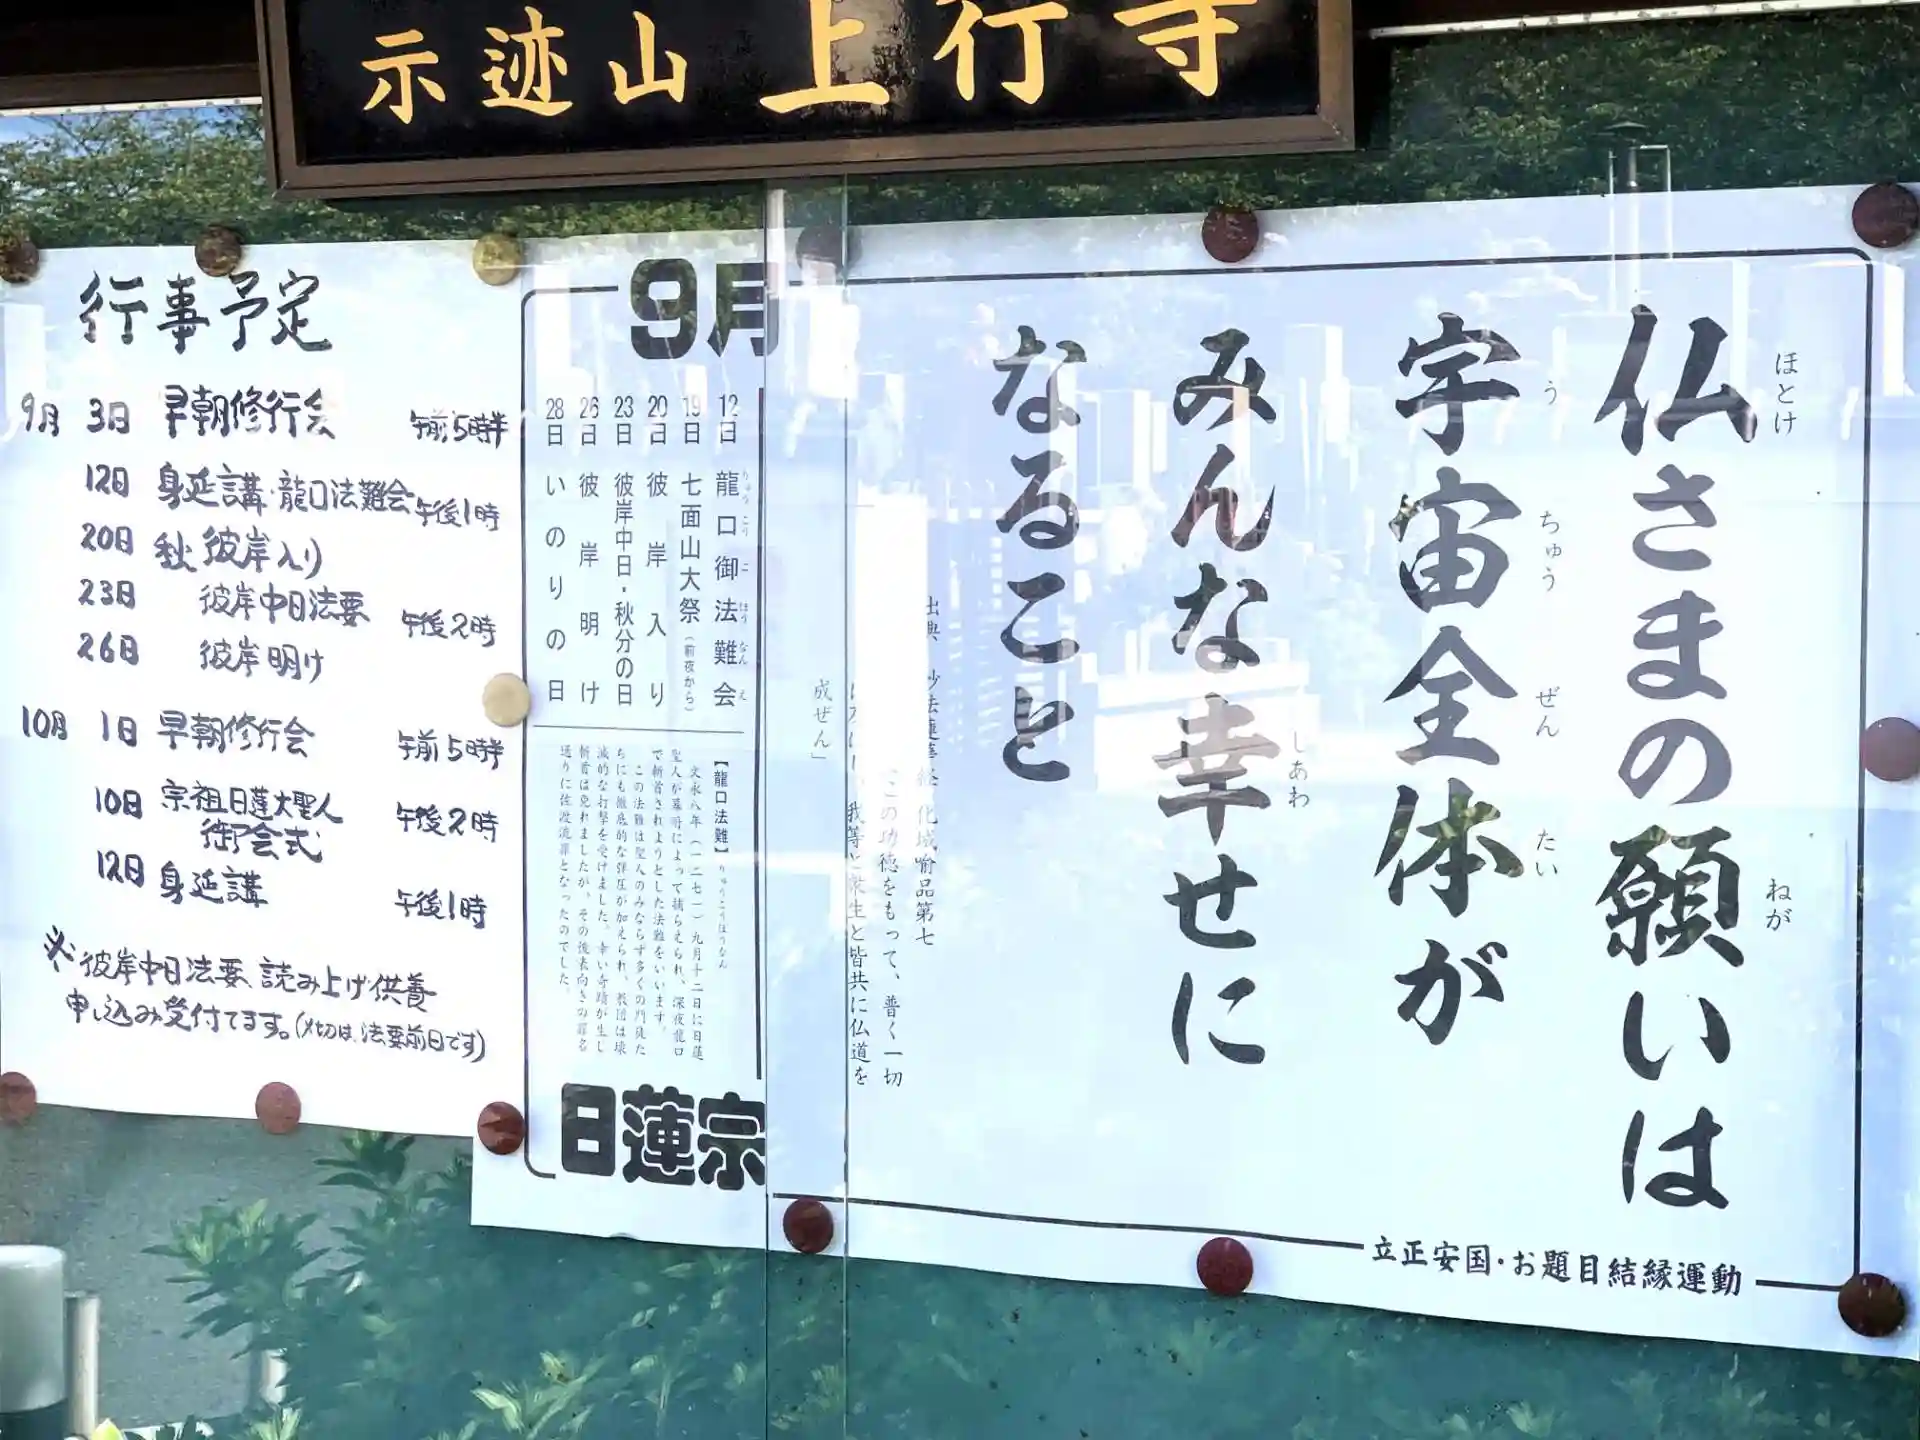 示迹山 上行寺
行事予定
9月 3日 早朝修行会 午前5時半
12日 身延講・龍口法難会 午後1時
20日 秋彼岸入り
23日 彼岸中日法要 午後2時
26日 彼岸明け
10月 1日 早朝修行会 午前5時半
10日 宗祖日蓮大聖人
御会式 午後2時
12日 身延講 午後1時
※彼岸中日法要、読み上げ供養
申し込み受付てます。(〆切は、法要前日です)
仏さまの願いは
ほとけ ねが
宇宙全体が
う ちゅう ぜん たい
みんな幸せに
しあわ
なること
出典 妙法蓮華経 化城喩品第七
この功徳をもって、普く一切
我等と衆生と皆共に仏道を
成ぜん」
9月
12日 龍口御法難会
りゅう こう ご ほう なん え
19日 七面山大祭(前夜から)
20日 彼岸入り
23日 彼岸中日・秋分の日
26日 彼岸明け
28日 いのりの日
【龍口法難】りゅうこうほうなん
文永八年(一二七一)九月十二日に日蓮
聖人が幕府によって捕らえられ、深夜龍口
で斬首されようとした法難をいいます。
この法難は聖人のみならず多くの門徒た
ちにも徹底的な弾圧が加えられ、教団は壊
滅的な打撃を受けました。幸い奇蹟が生じ
斬首は免れましたが、その後表向きの罪名
通りに佐渡流罪となったのでした。
日蓮宗
立正安国・お題目結縁運動